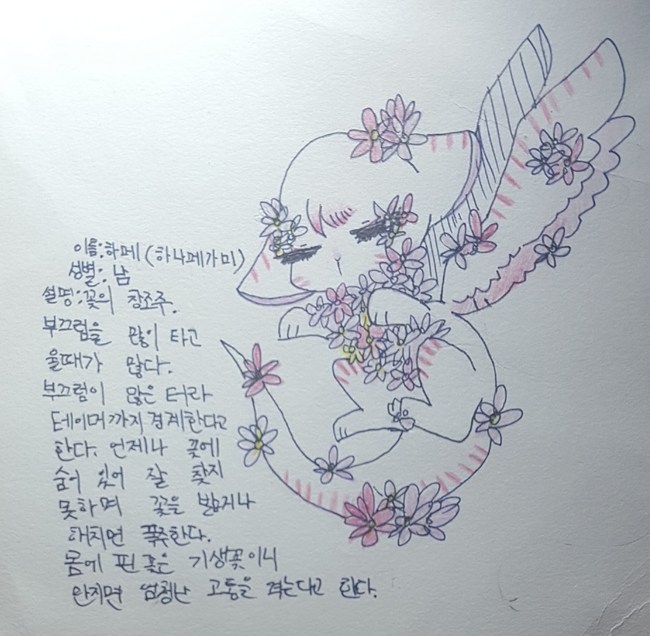 이름:하페(하나페가미)
성별: 남
설명:꽃의 창조주.
부끄럼을 많이 타고
울때가 많다.
부끄럼이 많은 터라
테이머까지 경계한다고
한다. 언제나 꽃에
숨어 있어 잘 찾지
못하며 꽃을 밟거나
해치면 폭주한다.
몸에 핀 꽃은 기생꽃이니
만지면 엄청난 고통을 겪는다고 한다.